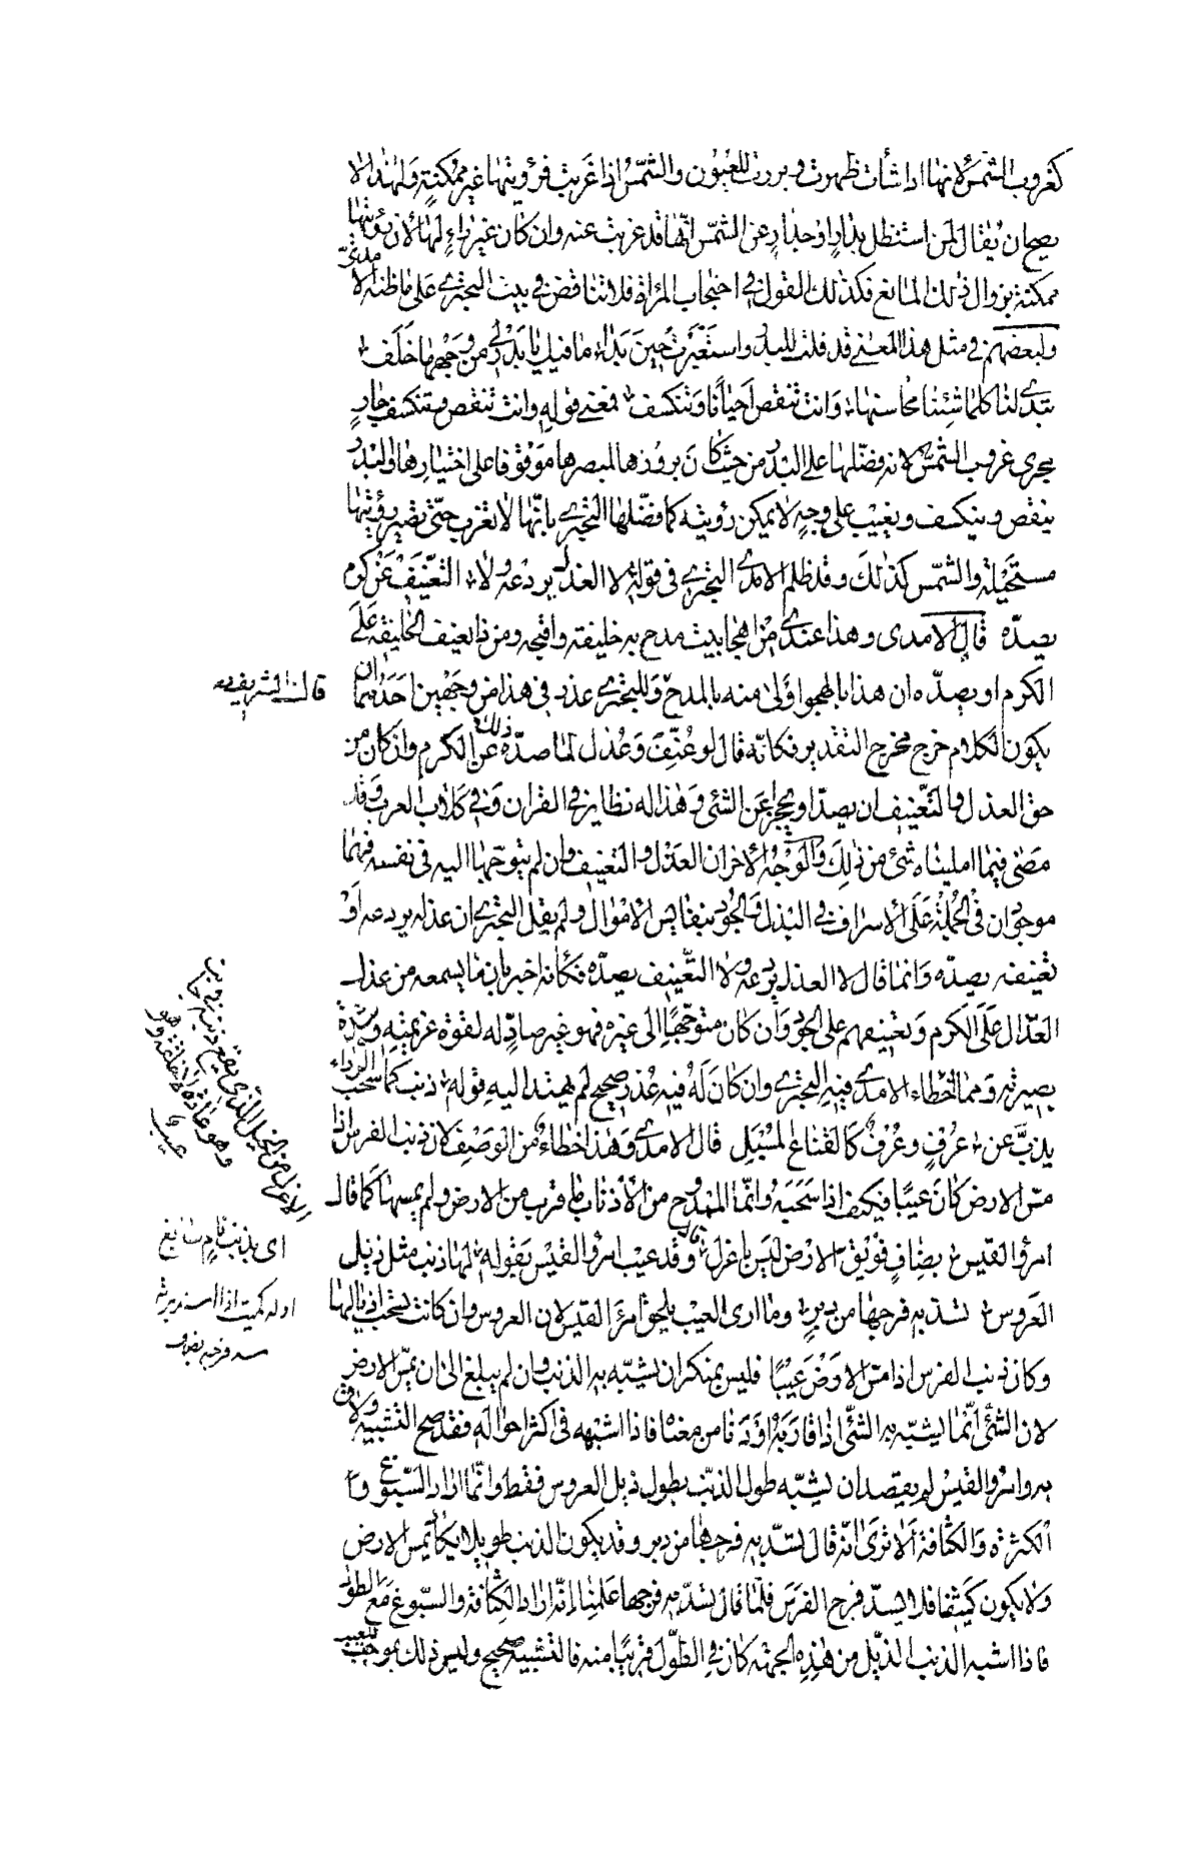 كغروب الشمس لانها اذا شأت ظهرت وبرزت للعيون والشمس اذا غربت فرؤيتها غير ممكنة ولهذا لا
يصح ان يقال لمن استظل بدار او جدار عن الشمس انها قد غربت عنه وان كان غير راء لها لان رؤيتها
ممكنة بزوال ذلك المانع فكذلك القول في احتجاب المراة فلا تناقض في بيت البحتري على ما ظنه الامدي
ولبعضهم في مثل هذا المعنى قد قلت للبدر واستعبرت حين بدا ما فيك يا بدر لي من وجهها خلف
تبدي لنا كلما شئنا محاسنها وانت تنقص احيانا وتنكسف فمعنى قوله وانت تنقص وتنكسف جار
مجرى غروب الشمس لانه فضلها على البدر من حيث كان بروزها لمبصرها موقوفا على اختيارها والبدر
ينقص وينكسف ويغيب على وجه لا يمكن رؤيته كما فضلها البحتري بانها لا تغرب حتى تصير رؤيتها
مستحيلة والشمس كذلك وقد ظلم الامدي البحتري في قوله لا العذل يردعه ولا التعنيف عن كرم
يصده قال الامدى وهذا عندي من اهجا بيت مدح به خليفة واقبحه ومن ذا يعنف الخليفة على
الكرم او يصده ان هذا بالهجو اولى منه بالمدح وللبحتري عذر في هذا من وجهين احدهما ان
قال الشريف
يكون الكلام خرج مخرج التقدير فكانه قال لو عنف وعذل لما صده ذلك عن الكرم وان كان من
حق العذل والتعنيف ان يصد او يحجز عن الشئ وهذا له نظاير في القران وفي كلام العرب وقد
مضى فيما امليناه شئ من ذلك والوجه الاخر ان العذل والتعنيف وان لم يتوجها اليه في نفسه فهما
موجودان في الجملة على الاسراف في البذل والجود بنفايس الاموال ولم يقل البحتري ان عذله يردعه او
تعنيفه يصده وانما قال لا العذل يردعه ولا التعنيف يصده فكانه اخبر بان ما يسمعه من عذل
العذال على الكرم وتعنيفهم على الجود وان كان متوجها الى غيره فهو غير صاد له لقوة عزيمته وشدة
بصيرته ومما خطاء الامدي فيه البحتري وان كان له فيه عذر صحيح لم يهتد اليه قوله ذنب كما سحب الرداء
يذب عن عرف وعرف كالقناع المسبل قال الامدي وهذا خطاء من الوصف لان ذنب الفرس اذا
مس الارض كان عيبا فكيف اذا سحبه وانما الممدوح من الاذناب ما قرب من الارض ولم يمسها كما قال
امرؤ القيس بضاف فويق الارض ليس باعزل قال وقد عيب امرؤ القيس بقوله لها ذنب مثل ذيل
العروس تسد به فرجها من دبر وما ارى العيب يلحق امرا القيس لان العروس وان كانت تسحب اذيالها
وكان ذنب الفرس اذا مس الارض عيبا فليس بمنكر ان يشبه به الذنب وان لم يبلغ الى ان يمس الارض
لان الشئ انما يشبه به الشئ اذا قاربه او دنا من معناه فاذا اشبهه في اكثر احواله فقد صح التشبيه ولاق
به وامرؤ القيس لم يقصد ان يشبه طول الذنب بطول ذيل العروس فقط وانما اراد السبوغ و
الكثرة والكثافة الا ترى انه قال تسد به فرجها من دبر وقد يكون الذنب طويلا يكاد يمس الارض
ولا يكون كثيفا فلا يسد فرج الفرس فلما قال تسد به فرجها علمنا انه اراد الكثافة والسبوغ مع الطول
فاذا اشبه الذنب الذيل من هذه الجهة كان في الطول قريبا منه فالتشبيه صحيح وليس ذلك بموجب للعيب
الاعزل من الخيل الذي يقع ذنبه في جانب
وهو عادة لا خلقة وهو
عيب